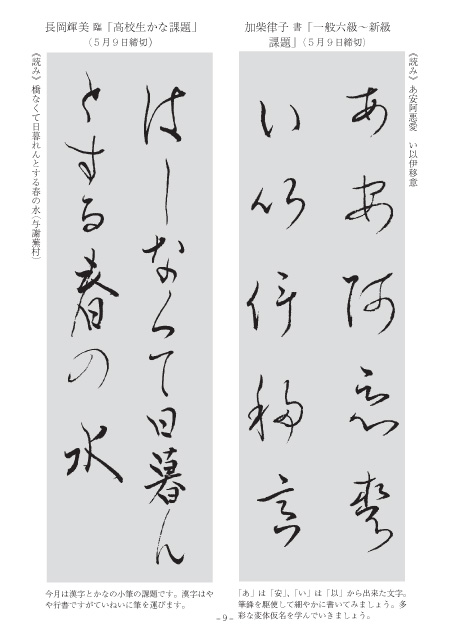 加柴律子 書「一般六級〜新級
課題」（５月９日締切）
《読み》あ安阿悪愛　い以伊移意
あ安阿悪愛
い以伊移意
「あ」は「安」、「い」は「以」から出来た文字。
筆鋒を駆使して細やかに書いてみましょう。多
彩な変体仮名を学んでいきましょう。
長岡輝美 臨「高校生かな課題」
（５月９日締切）
はしなくて日暮ん
とする春の水
《読み》橋なくて日暮れんとする春の水（与謝蕪村）
今月は漢字とかなの小筆の課題です。漢字はや
や行書ですがていねいに筆を運びます。
- 9 -